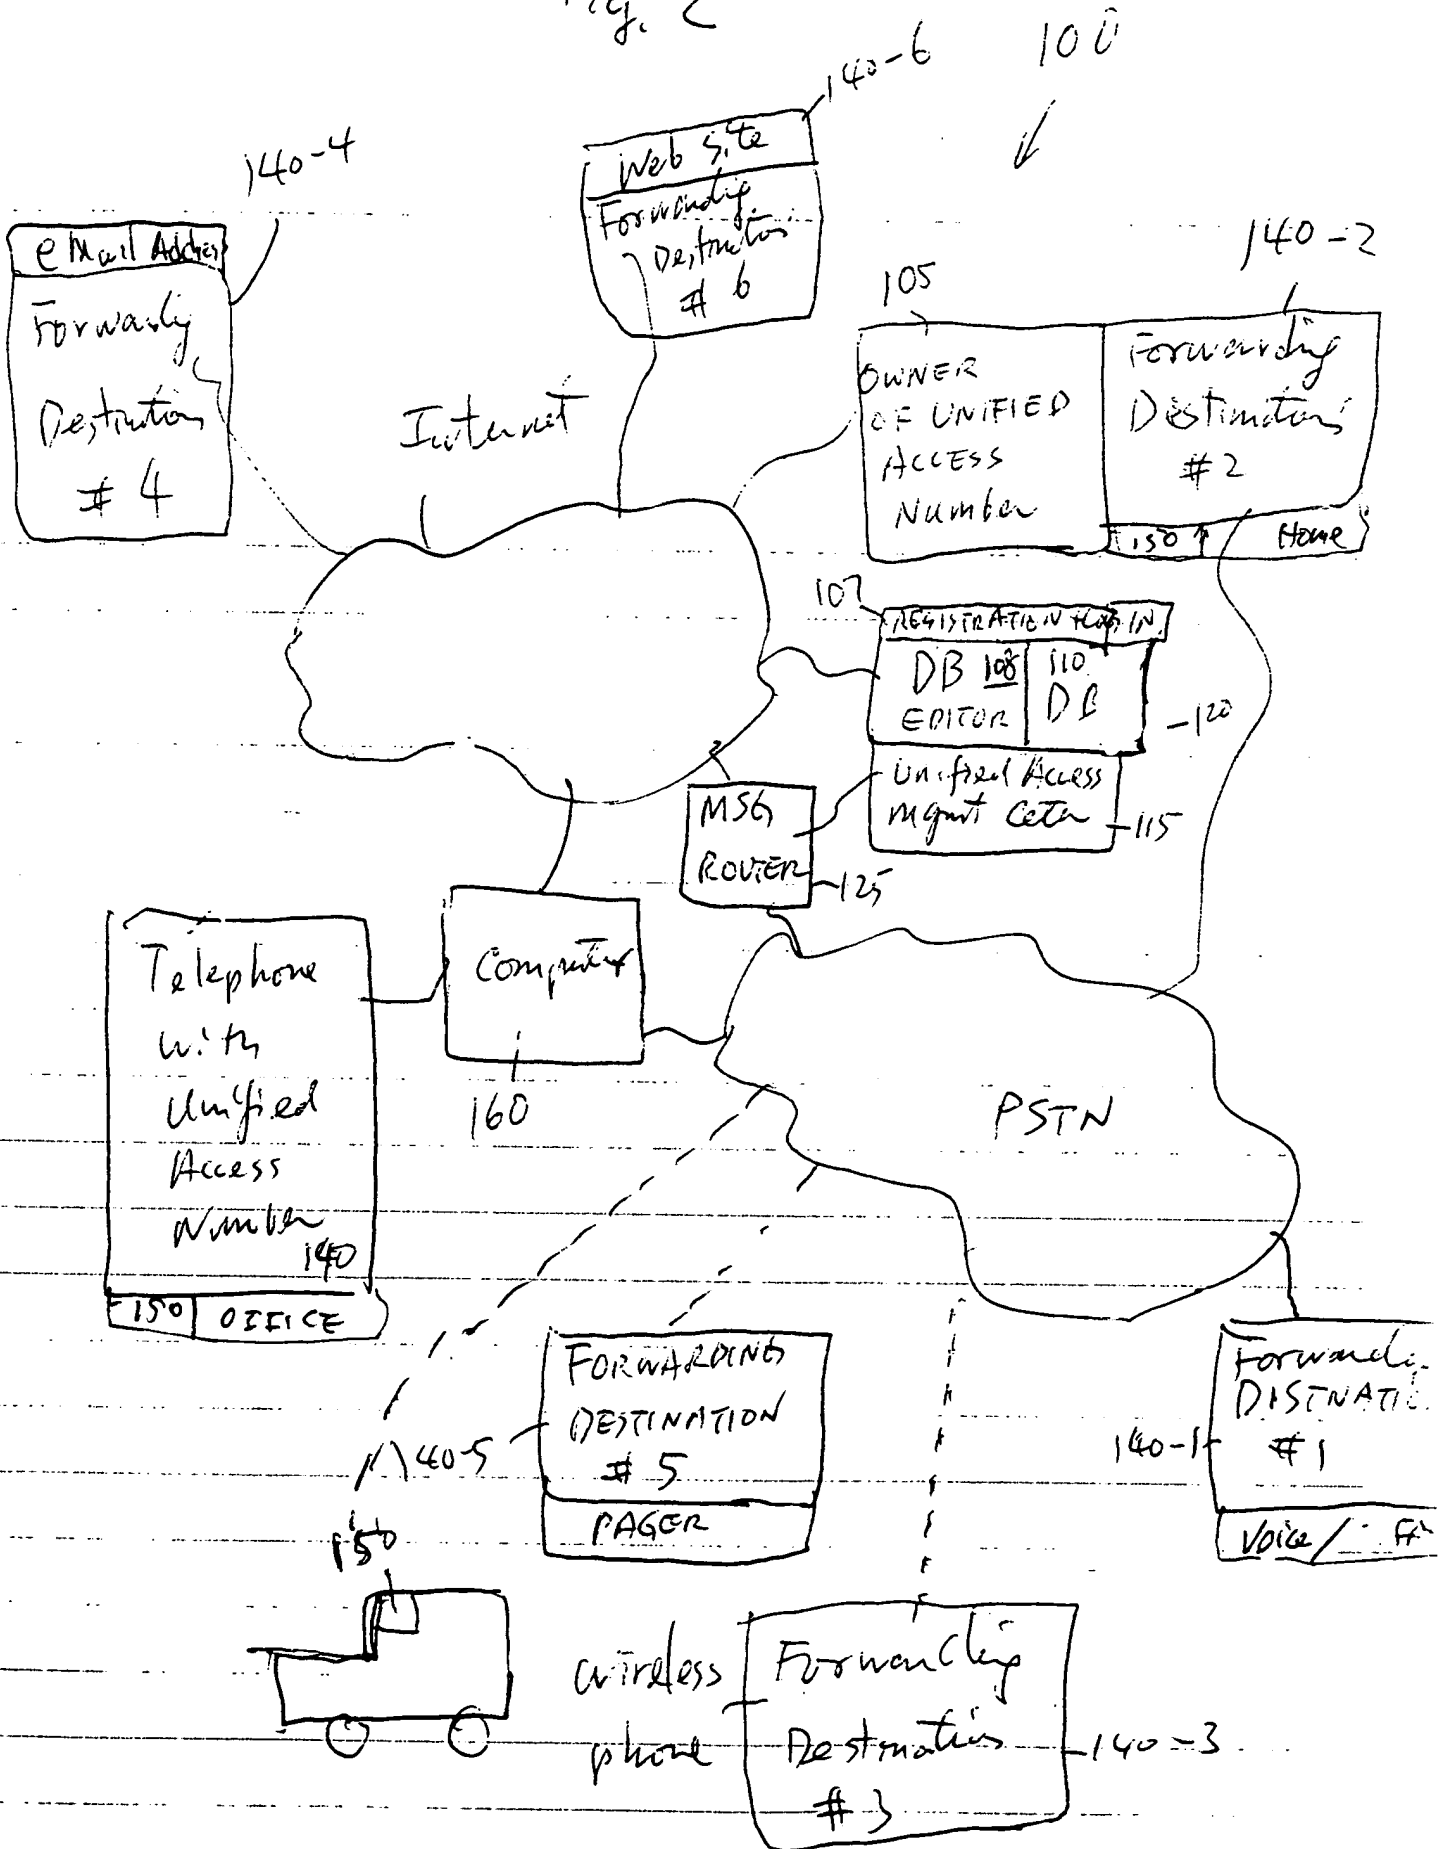 Fig. 2
100
140-6
Web Site
Forwarding
Destination
# 6
140-4
eMail Address
Forwarding
Destination
# 4
Internet
105
OWNER
OF UNIFIED
ACCESS
Number
140-2
Forwarding
Destination
#2
150
Home
107
REGISTRATION + LOG IN
DB 108
EDITOR
110
DB
120
Unified Access
mgmt Cetr
115
MSG
ROUTER
125
Telephone
with
Unified
Access
Number
140
150
OFFICE
Computer
160
PSTN
FORWARDING
DESTINATION
# 5
PAGER
140-5
Forwardi
DISTNATI
#1
140-1
Voice/
150
wireless
phone
Forwarding
Destination
#3
140-3